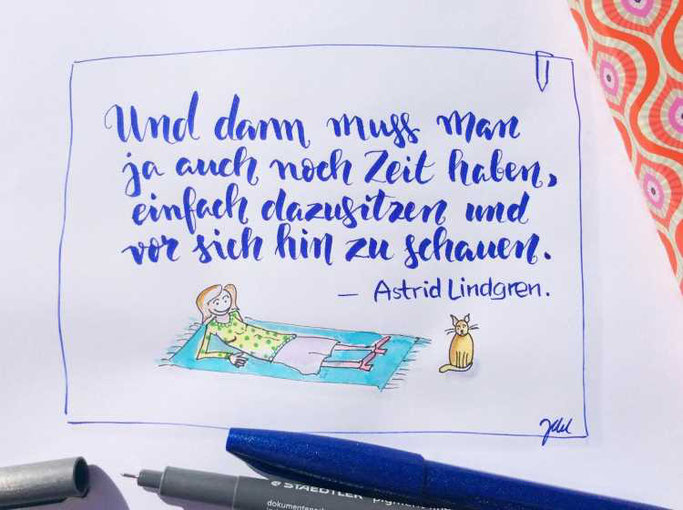 Und dann muss man
ja auch noch Zeit haben,
einfach dazusitzen und
vor sich hin zu schauen.
— Astrid Lindgren.
STAEDTLER